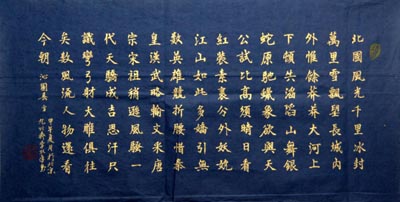 北國風光千里冰封
萬里雪飄望長城內
外惟餘莽莽大河上
下頓失滔滔山舞銀
蛇原馳蠟象欲與天
公試比高須晴日看
紅裝素裹分外妖嬈
江山如此多嬌引無
數英雄競折腰惜秦
皇漢武略輸文采唐
宗宋祖稍遜風騷一
代天驕成吉思汗只
識彎弓射大雕俱往
矣數風流人物還看
今朝 沁園春雪